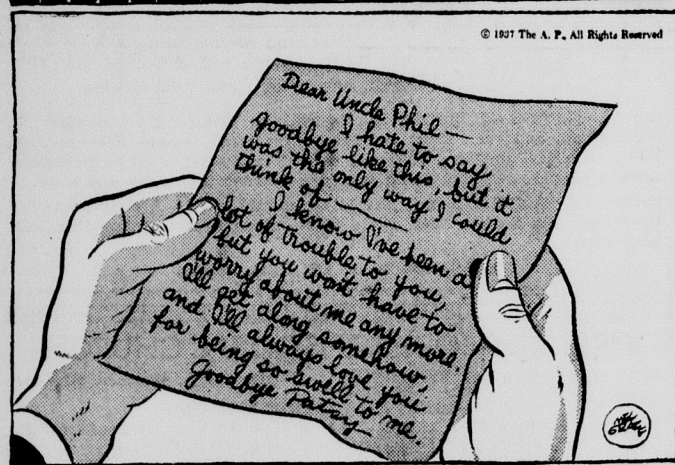 © 1937 The A. P., All Rights Reserved
Dear Uncle Phil —
I hate to say
goodbye like this, but it
was the only way I could
think of ———
I know I've been a
lot of trouble to you,
but you won't have to
worry about me any more.
I'll get along somehow,
and I'll always love you
for being so swell to me.
Goodbye Patsy